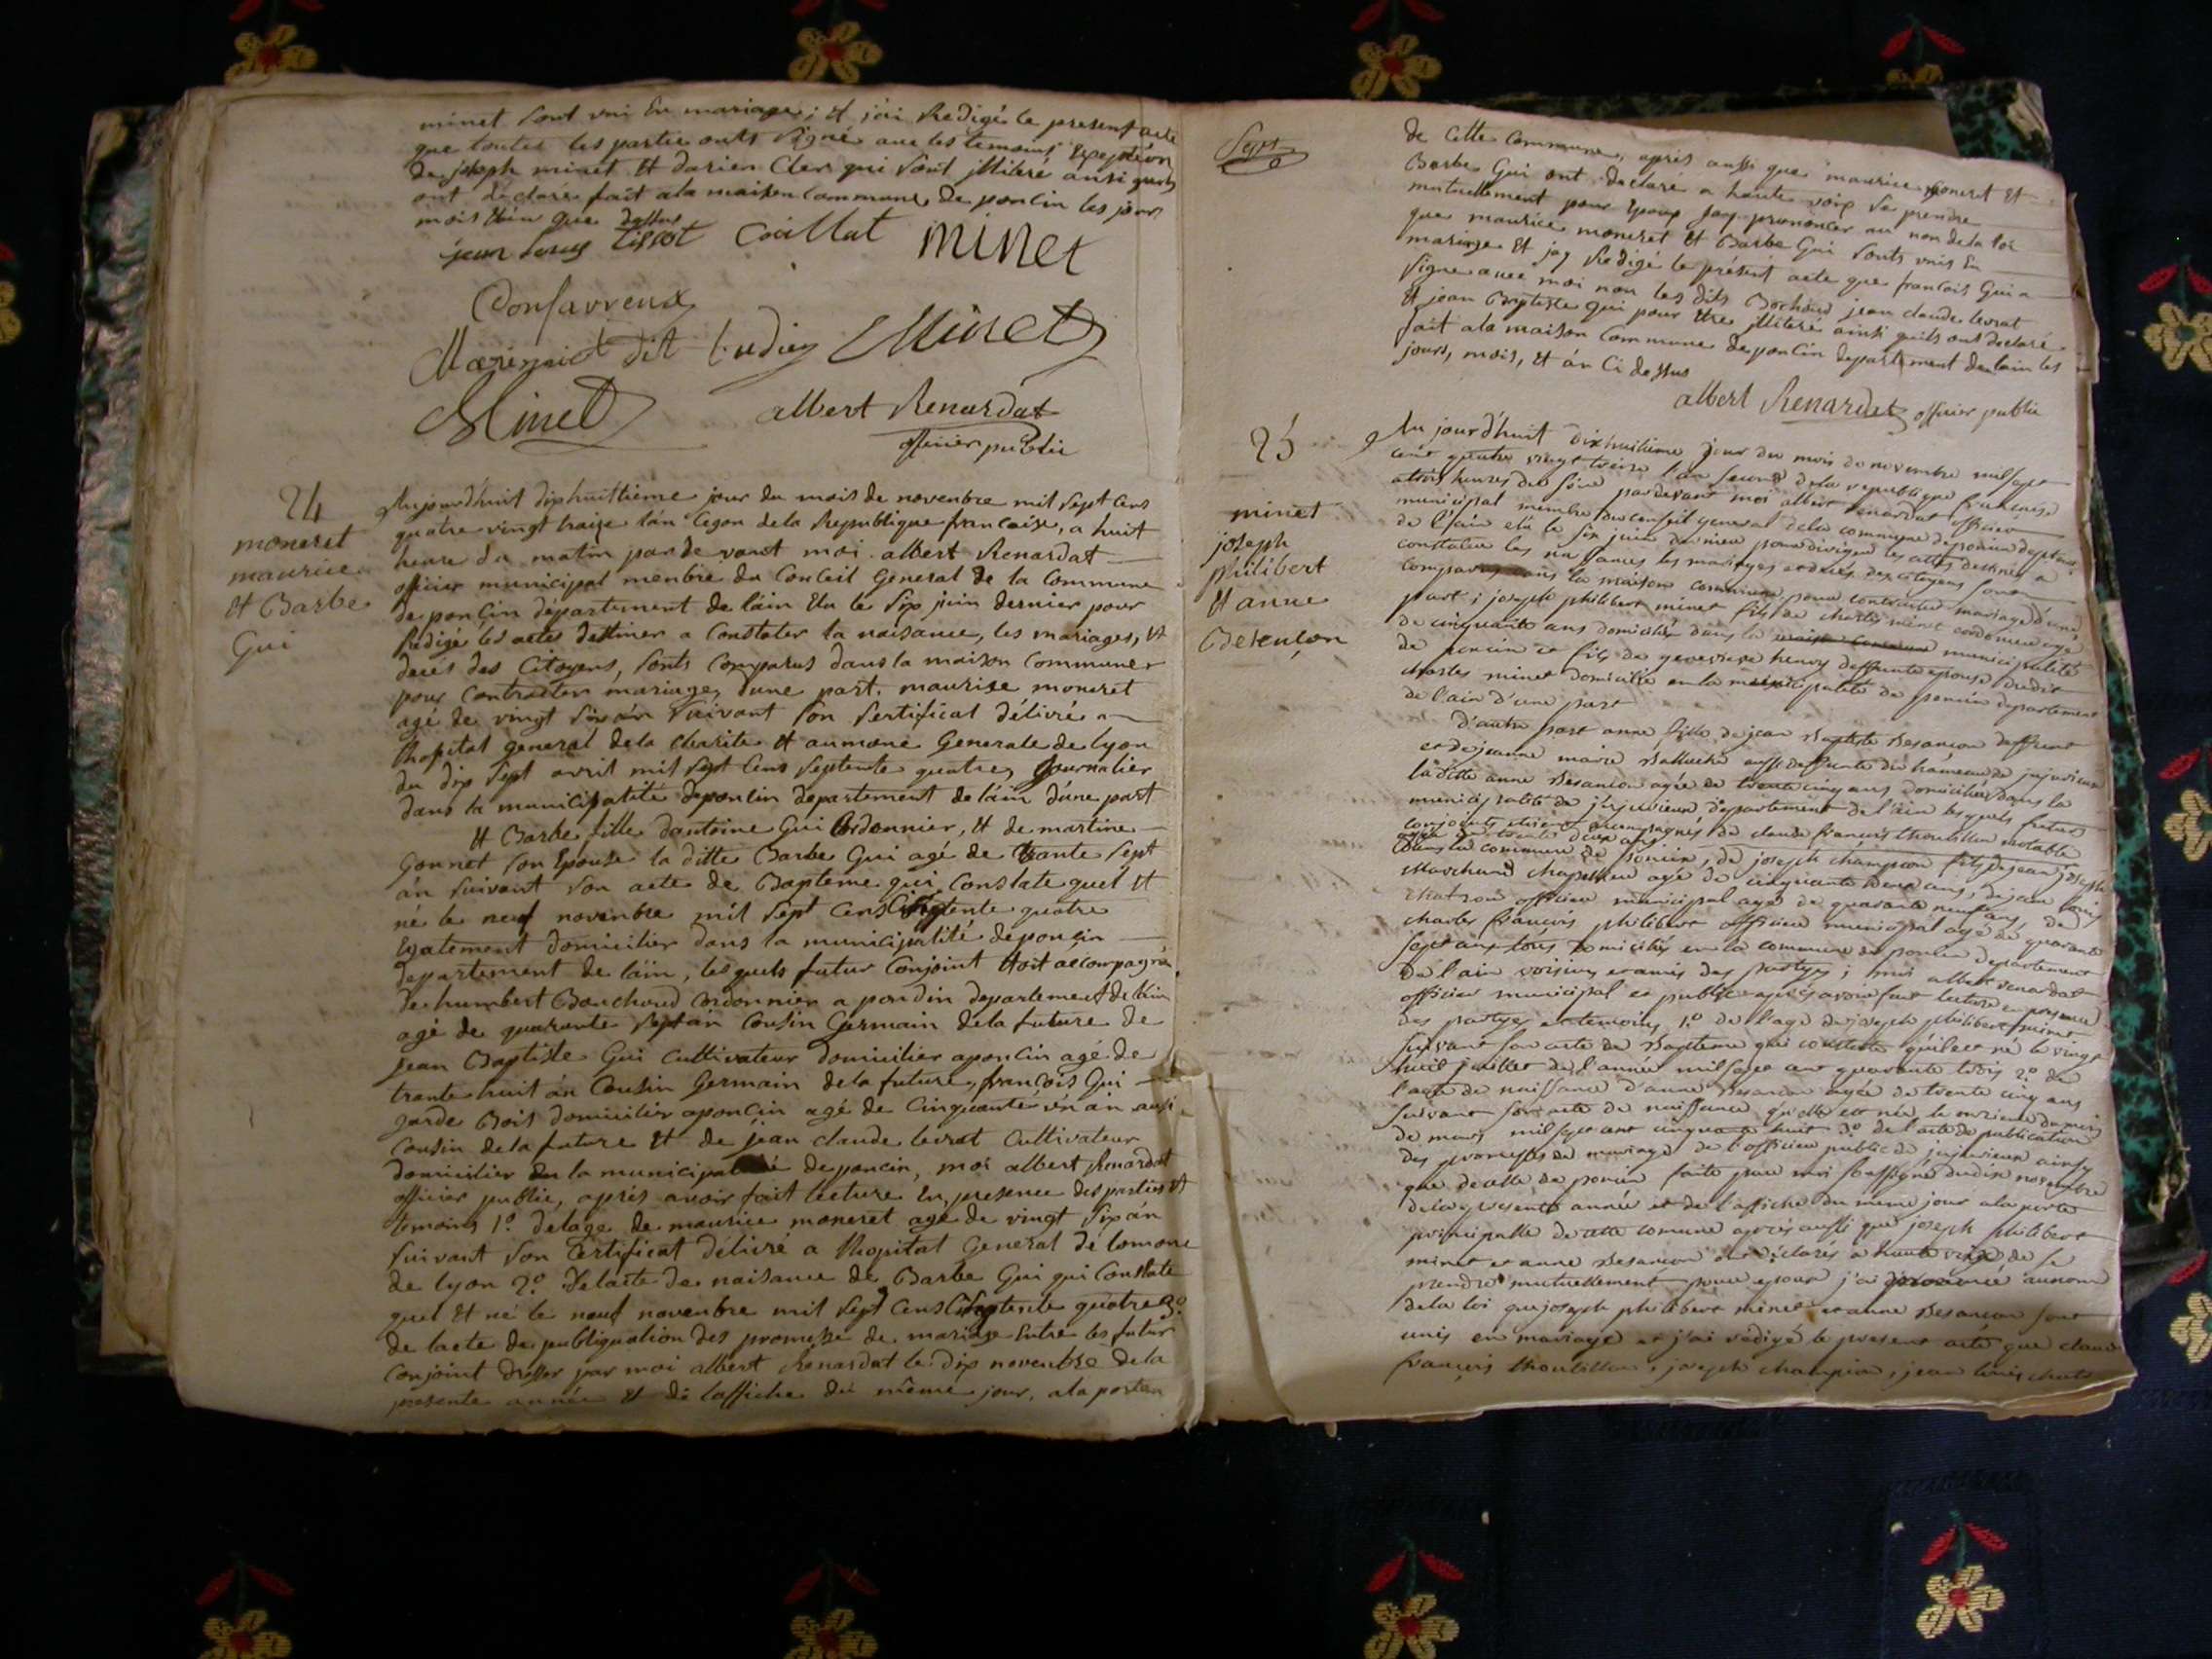 minet sont uni En mariage; et j'ai Redigé le present acte
que toutes les partie onts signé avec les temoins Exeption
de joseph minet Et darien Cler qui sont jlliteré ainsi quils
ont déclaré fait a la maison Commune de poncin les jour
mois Et án que dessus
jean louis tissot Caillat minet
Confavreux
dit Minet
Minet albert Renardat
officier public
24
moneret
maurice
Et Barbe
Gui
Aujourd'huit dixhuittieme jour du mois de novenbre mil sept Cens
quatre vingt traize lán Cegon de la Republique francaise, a huit
heure du matin parde vant moi albert Renardat
officier municipal menbre du Conceil General de la Commune
de poncin département de láin Elu le six juin dernier pour
Redigé les actes destiner a Constater la naisance, les mariages, Et
decés des Citoyens, sonts Comparus dans la maison Commune
pour Contracter mariage, dune part. maurise moneret
agé de vingt six án suivant son sertificat délivré a
lhopital general de la charite et aumone Generale de lyon
du dix sept avril mil sept Cens septente quatre, journalier
dans la municipalité deponcin departement de láin dúne part
Et Barbe fille dantoine Gui Cordonnier, Et de martine
Gonnet son Epouse la ditte Barbe Gui agé de trante sept
án suivant son acte de Bapteme qui Constate quel Et
né le neuf novenbre mil sept Cens septente quatre
Egalement domicilier dans la municipalité deponcin
departement de láin, lesquels futur Conjoint Etoit accompagné
de humbert Bouchard Cordonnier a poncin departement de láin
agé de quarante sept án Cousin Germain dela future de
jean Baptiste Gui Cultivateur domicilier aponcin agé de
trante huit án Cousin Germain dela future, françois Gui
garde Bois domicilier aponcin agé de Cinquante ún án aussi
Cousin de la future Et de jean claude levrat Cultivateur
domicilier la municipalité de poncin, moi albert Renardat
officier public, aprés avoir fait lecture En presence des parties Et
temoins 1º delage de maurice moneret agé de vingt six án
suivant son Certificat délivré a lhopital General de lomone
de lyon 2º de lacte de naisance de Barbe Gui qui Constate
quel Et né le neuf novenbre mil sept Cens septente quatre 3º
de lacte de publiquation des promesse de mariage Entre les futur
Conjoint dresser par moi albert Renardat le dix novenbre dela
presente année Et de laffiche du même jour, ala porte
Sept
de Cette Commune, aprés aussi que maurice moneret Et
Barbe Gui ont declaré a haute voix se prendre
mutuellement pour Epoux jay prononcer au nom de la loi
que maurice moneret Et Barbe Gui sonts unis En
mariage Et jay Redigé le présent acte que francois Gui a
signe avec moi non les dits Bochard jean claude levrat
Et jean Baptiste Gui pour Etre jlliteré ainsi quils ont declaré
fait a la maison Commune de poncin departement delain les
jours, mois, Et án Ci dessus
albert Renardat officier public
25
minet
joseph
philibert
Et anne
Besençon
Au jourd'huit dixhuitieme jour du mois de novembre mil sept
cent quatre vingt treize l'an second de la republique française
a trois heures du soir pardevant moi albert renardat officier
municipal membre du conseil general de la commune de poncin depart.
de l'ain elu le six juin dernier pour diriger les actes destinés a
constater les naissances les mariages et decés des citoyens sont
comparus dans la maison commune pour contracter mariage d'une
part; joseph philibert minet fils de charles minet cordonnier agé
de cinquante ans domicilié dans la municipalité
de poncin et fils de genevieve henry deffunte epouse dudit
charles minet domicilié en la municipalité de poncin departement
de l'ain d'une part
d'autre part anne fille de jean Baptiste Besançon deffunt
et de jeanne marie aussi deffunte du hameau de jujurieux
la ditte anne Besançon agée de trente cinq ans domiciliée dans la
municipalité de jujurieux departement de l'ain lesquels futurs
conjoints etoient accompagnés de claude françois thoubillon notable
dans la commune de poncin, de joseph champion fils de jean joseph
Marchand chapellier agé de cinquante deux ans, de jean louis
chatron officier municipal agé de quarante neuf ans, de
charles françois philibert officier municipal agé de quarante
sept ans tous domiciliés en la commune de poncin departement
de l'ain voisins et amis des partyes; moi albert renardat
officier municipal et public après avoir fait lecture en presence
des partyes et temoins 1º de l'age de joseph philibert minet
suivant son acte de Bapteme qui constate qu'il est né le vingt
huit juillet de l'année mil sept cent quarante trois 2º de
l'acte de naissance d'anne Besançon agée de trente cinq ans
suivant son acte de naissance qu'elle est née le onzieme du mois
de mars mil sept cent cinquante huit 3º de l'acte de publication
des promesses de mariage de l'officier public de jujurieux ainsy
que de celle de poncin faite par moi soussigné du dix novembre
de la presente année et de l'affiche du meme jour a la porte
principalle de cette comune après aussi que joseph philibert
minet et anne Besançon ont declarés a haute voix de se
prendre mutuellement pour epoux j'ai prononcé au nom
de la loi que joseph philibert minet et anne Besançon sont
unis en mariage et j'ai rédigé le present acte que claude
françois thoubillon, joseph champion, jean louis chat